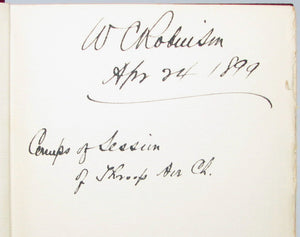 W C Robinson
Apr 24 1899
Comps of Session
of Throop Ave Ch.